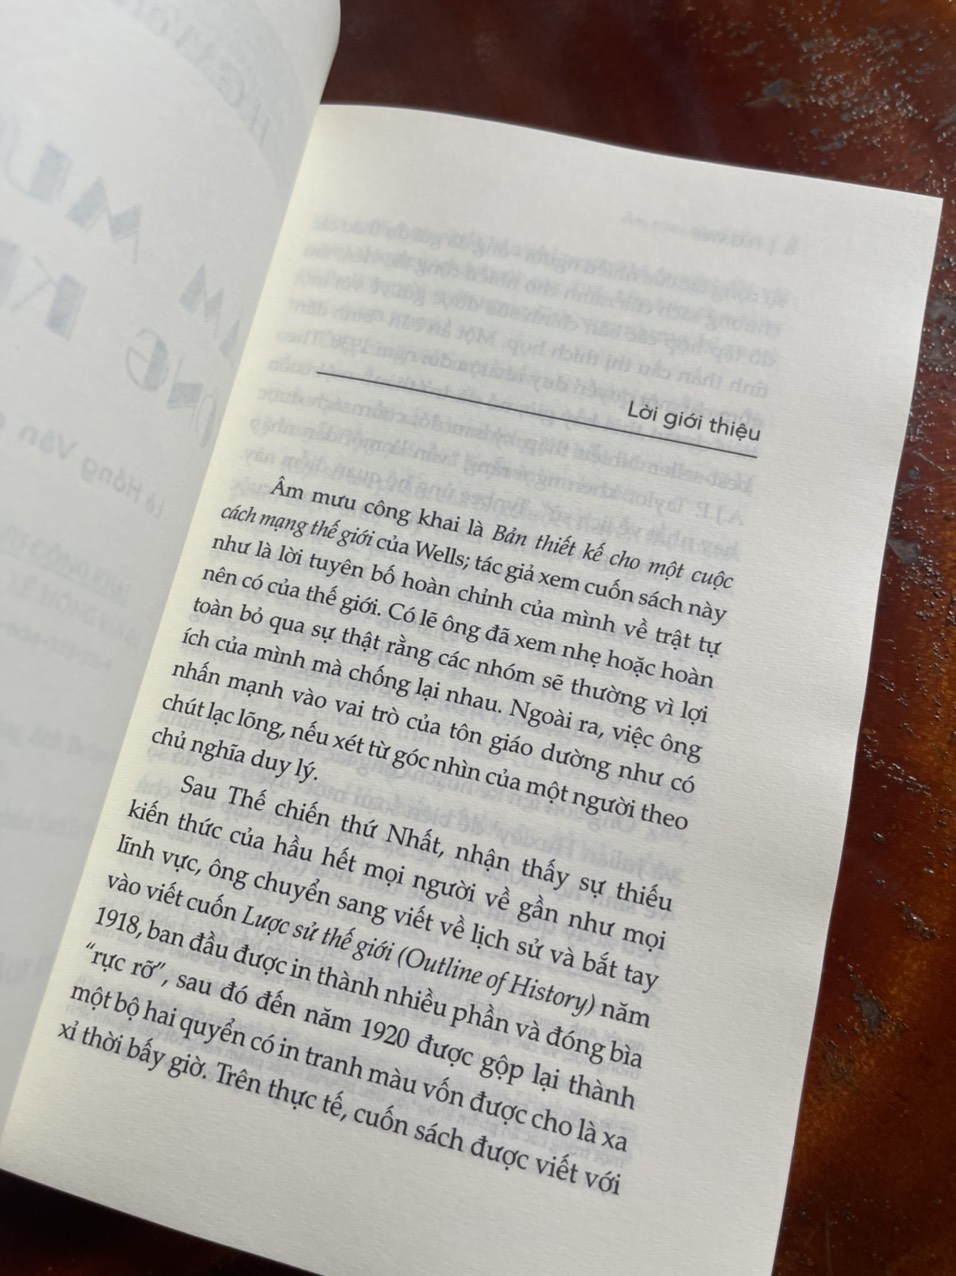 Lời giới thiệu
Âm mưu công khai là Bản thiết kế cho một cuộc
cách mạng thế giới của Wells; tác giả xem cuốn sách này
như là lời tuyên bố hoàn chỉnh của mình về trật tự
nên có của thế giới. Có lẽ ông đã xem nhẹ hoặc hoàn
toàn bỏ qua sự thật rằng các nhóm sẽ thường vì lợi
ích của mình mà chống lại nhau. Ngoài ra, việc ông
nhấn mạnh vào vai trò của tôn giáo dường như có
chút lạc lõng, nếu xét từ góc nhìn của một người theo
chủ nghĩa duy lý.
Sau Thế chiến thứ Nhất, nhận thấy sự thiếu
kiến thức của hầu hết mọi người về gần như mọi
lĩnh vực, ông chuyển sang viết về lịch sử và bắt tay
vào viết cuốn Lược sử thế giới (Outline of History) năm
1918, ban đầu được in thành nhiều phần và đóng bìa
“rực rỡ”, sau đó đến năm 1920 được gộp lại thành
một bộ hai quyển có in tranh màu vốn được cho là xa
xỉ thời bấy giờ. Trên thực tế, cuốn sách được viết với